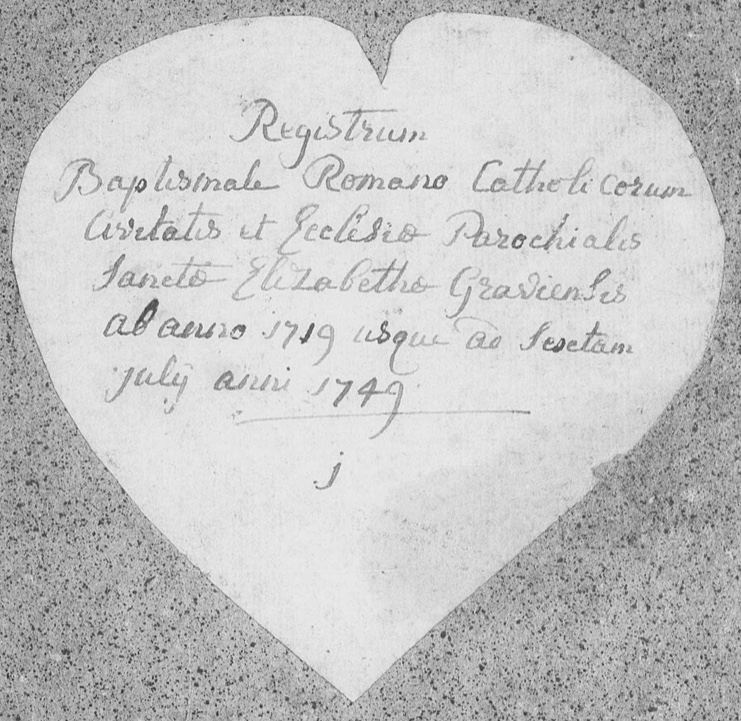 Registrum
Baptismale Romano Catholicorum
Civitatis et Ecclesiæ Parochialis
Sanctæ Elizabethæ Graviensis
ab anno 1719 usque ad Sextam
july anni 1749
j